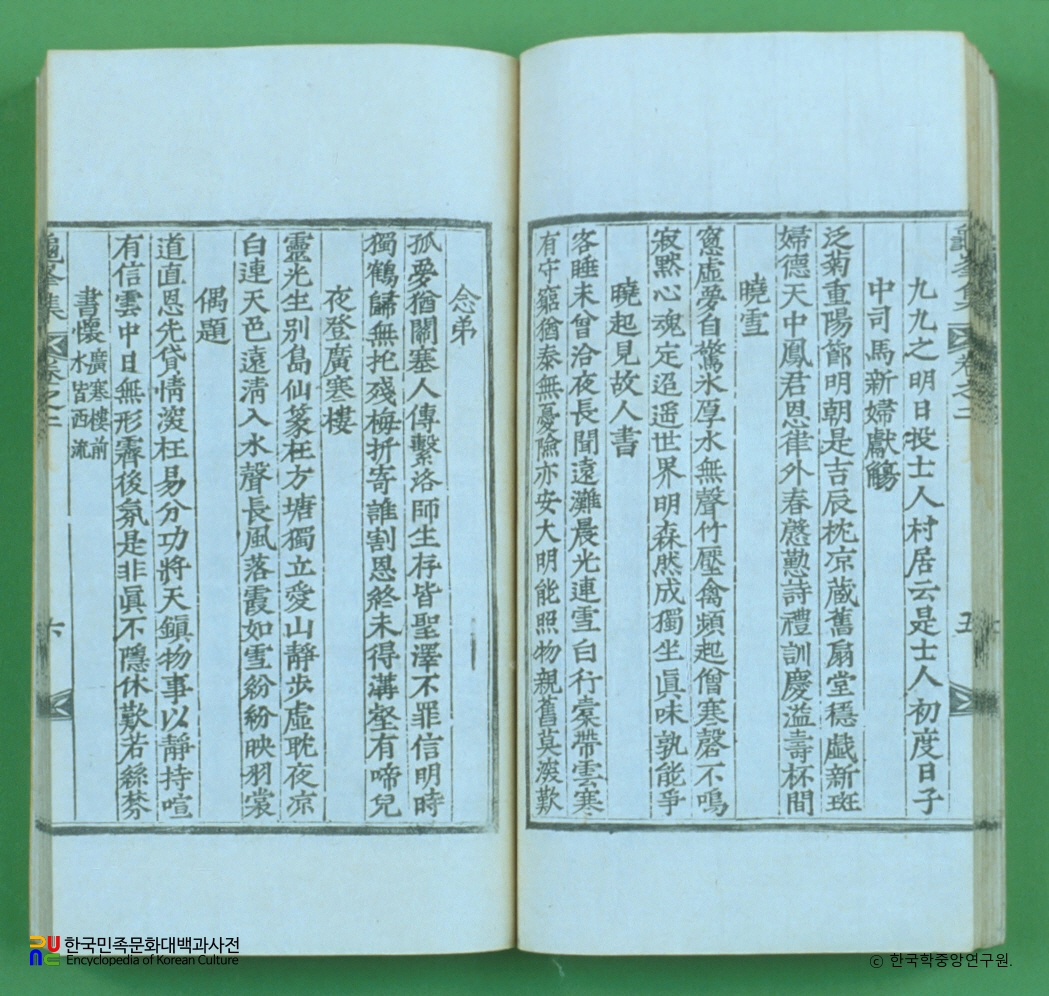 九九之明日投士人村居云是士人初度日子
中司馬新婦獻觴
泛菊重陽節明朝是吉辰枕凉藏舊扇堂穩戱新斑
婦德天中鳳君恩律外春慇懃詩禮訓慶溢壽杯間
曉雪
窻虛夢自驚氷厚水無聲竹壓禽頻起僧寒磬不鳴
寂黙心魂定迢遥世界明森然成獨坐眞味孰能爭
曉起見故人書
客睡未曾洽夜長聞遠灘晨光連雪白行槖帶雲寒
有守窮猶泰無憂險亦安大明能照物親舊莫深歎
龜峯集
卷之二
五
念弟
孤夢猶關塞人傳繫洛師生存皆聖澤不罪信明時
獨鶴歸無托殘梅折寄誰割恩終未得溝壑有啼兒
夜登廣寒樓
靈光生别島仙篆在方塘獨立愛山靜步虛耽夜凉
白連天色遠淸入水聲長風落霞如雪紛紛映羽裳
偶題
道直恩先貸情深在易分功將天鎭物事以靜持喧
有信雲中日無形霽後氛是非眞不隱休歎若絲棼
書懷 廣寒樓前水皆西流
龜峯集
卷之二
六
한국민족문화대백과사전
Encyclopedia of Korean Culture
ⓒ 한국학중앙연구원.